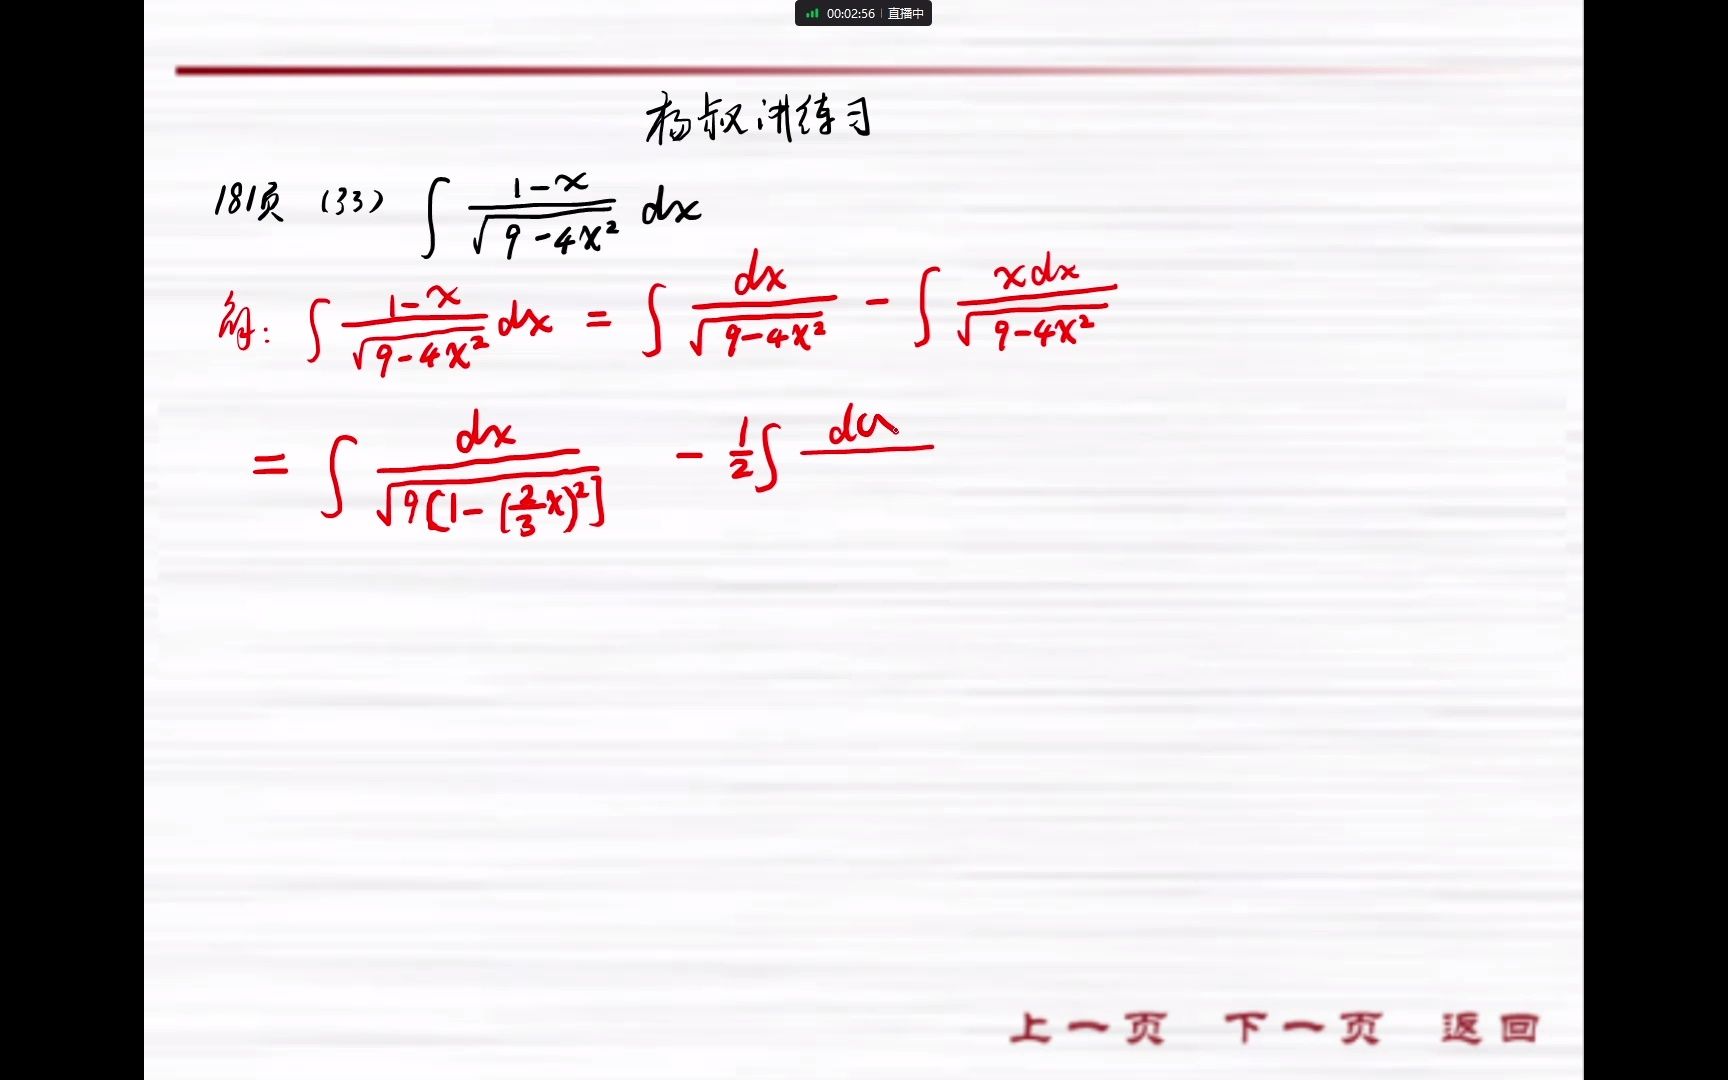 00:02:56 直播中
杨叔讲练习
181页 (33) ∫ (1-x)/√(9-4x²) dx
解: ∫ (1-x)/√(9-4x²) dx = ∫ dx/√(9-4x²) - ∫ xdx/√(9-4x²)
= ∫ dx/√(9[1-(2/3 x)²]) - 1/2 ∫ d
上一页 下一页 返回